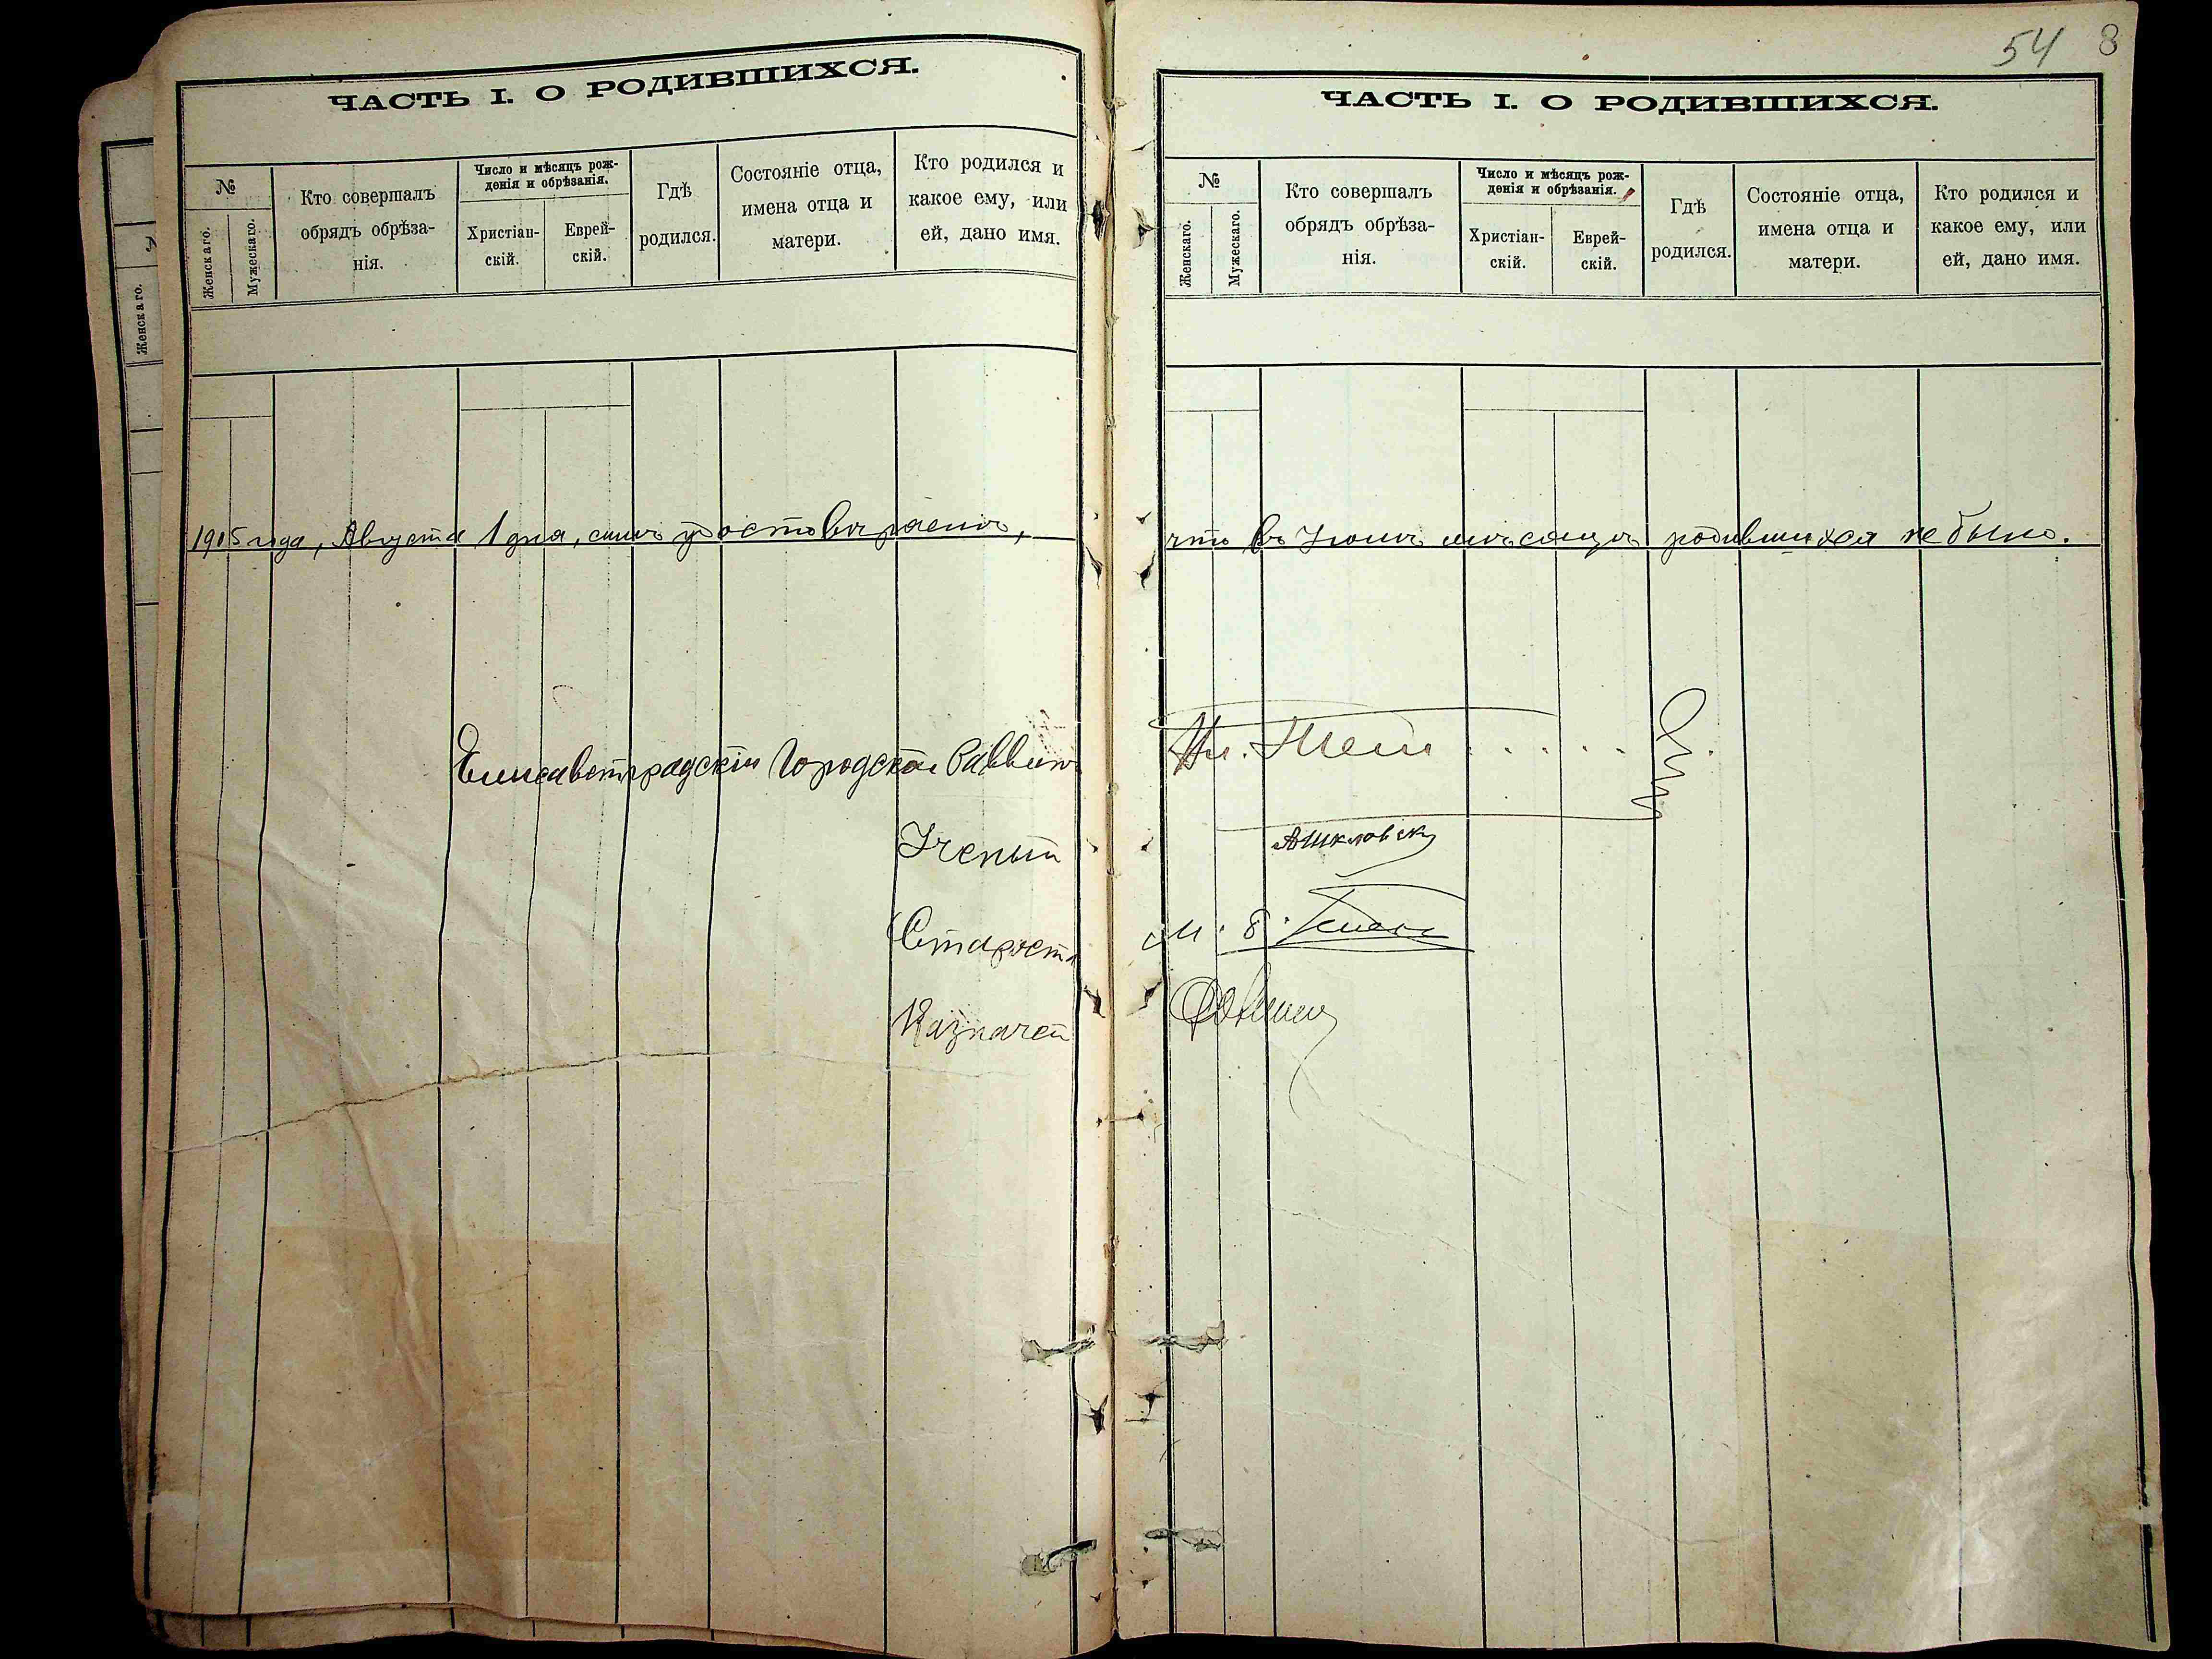 ЧАСТЬ I. О РОДИВШИХСЯ.
№
Женскаго.
Мужескаго.
Кто совершалъ
обрядъ обрѣза-
нія.
Число и мѣсяцъ рож-
денія и обрѣзанія.
Христіан-
скій.
Еврей-
скій.
Гдѣ
родился.
Состояніе отца,
имена отца и
матери.
Кто родился и
какое ему, или
ей, дано имя.
1905 года, Августа 1 дня, симъ удостовѣряемъ,
Елисаветградскій Городской Раввинъ
Ученый
Староста
Казначей
Женскаго.
54 8
ЧАСТЬ I. О РОДИВШИХСЯ.
№
Женскаго.
Мужескаго.
Кто совершалъ
обрядъ обрѣза-
нія.
Число и мѣсяцъ рож-
денія и обрѣзанія.
Христіан-
скій.
Еврей-
скій.
Гдѣ
родился.
Состояніе отца,
имена отца и
матери.
Кто родился и
какое ему, или
ей, дано имя.
что въ мѣсяцѣ родившихся не было.
АШкловскі